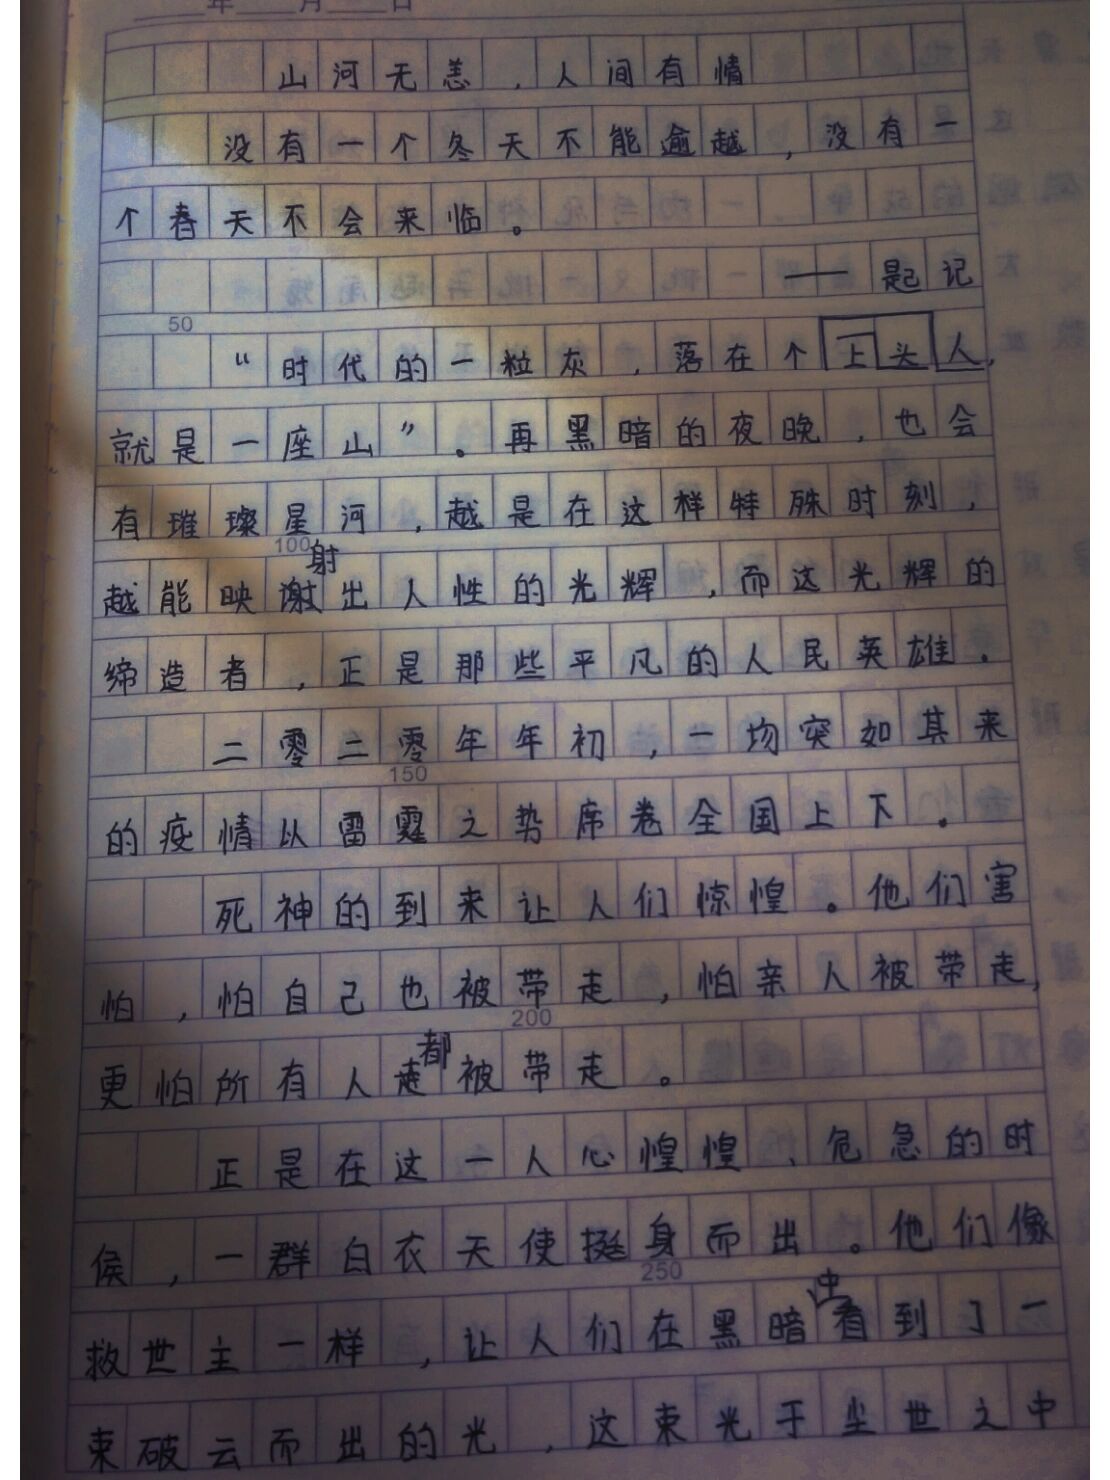 年 月 日
山河无恙，人间有情
没有一个冬天不能逾越，没有一
个春天不会来临。
——起记
50
“时代的一粒灰，落在个上头人，
就是一座山”。再黑暗的夜晚，也会
有璀璨星河，越是在这样特殊时刻，
100
射
越能映谢出人性的光辉，而这光辉的
缔造者，正是那些平凡的人民英雄.
二零二零年年初，一场突如其来
150
的疫情以雷霆之势席卷全国上下.
死神的到来让人们惊惶。他们害
怕，怕自己也被带走，怕亲人被带走，
200
都
更怕所有人走被带走。
正是在这一人心惶惶、危急的时
侯，一群白衣天使挺身而出。他们像
250
中
救世主一样，让人们在黑暗看到了一
束破云而出的光，这束光于尘世之中